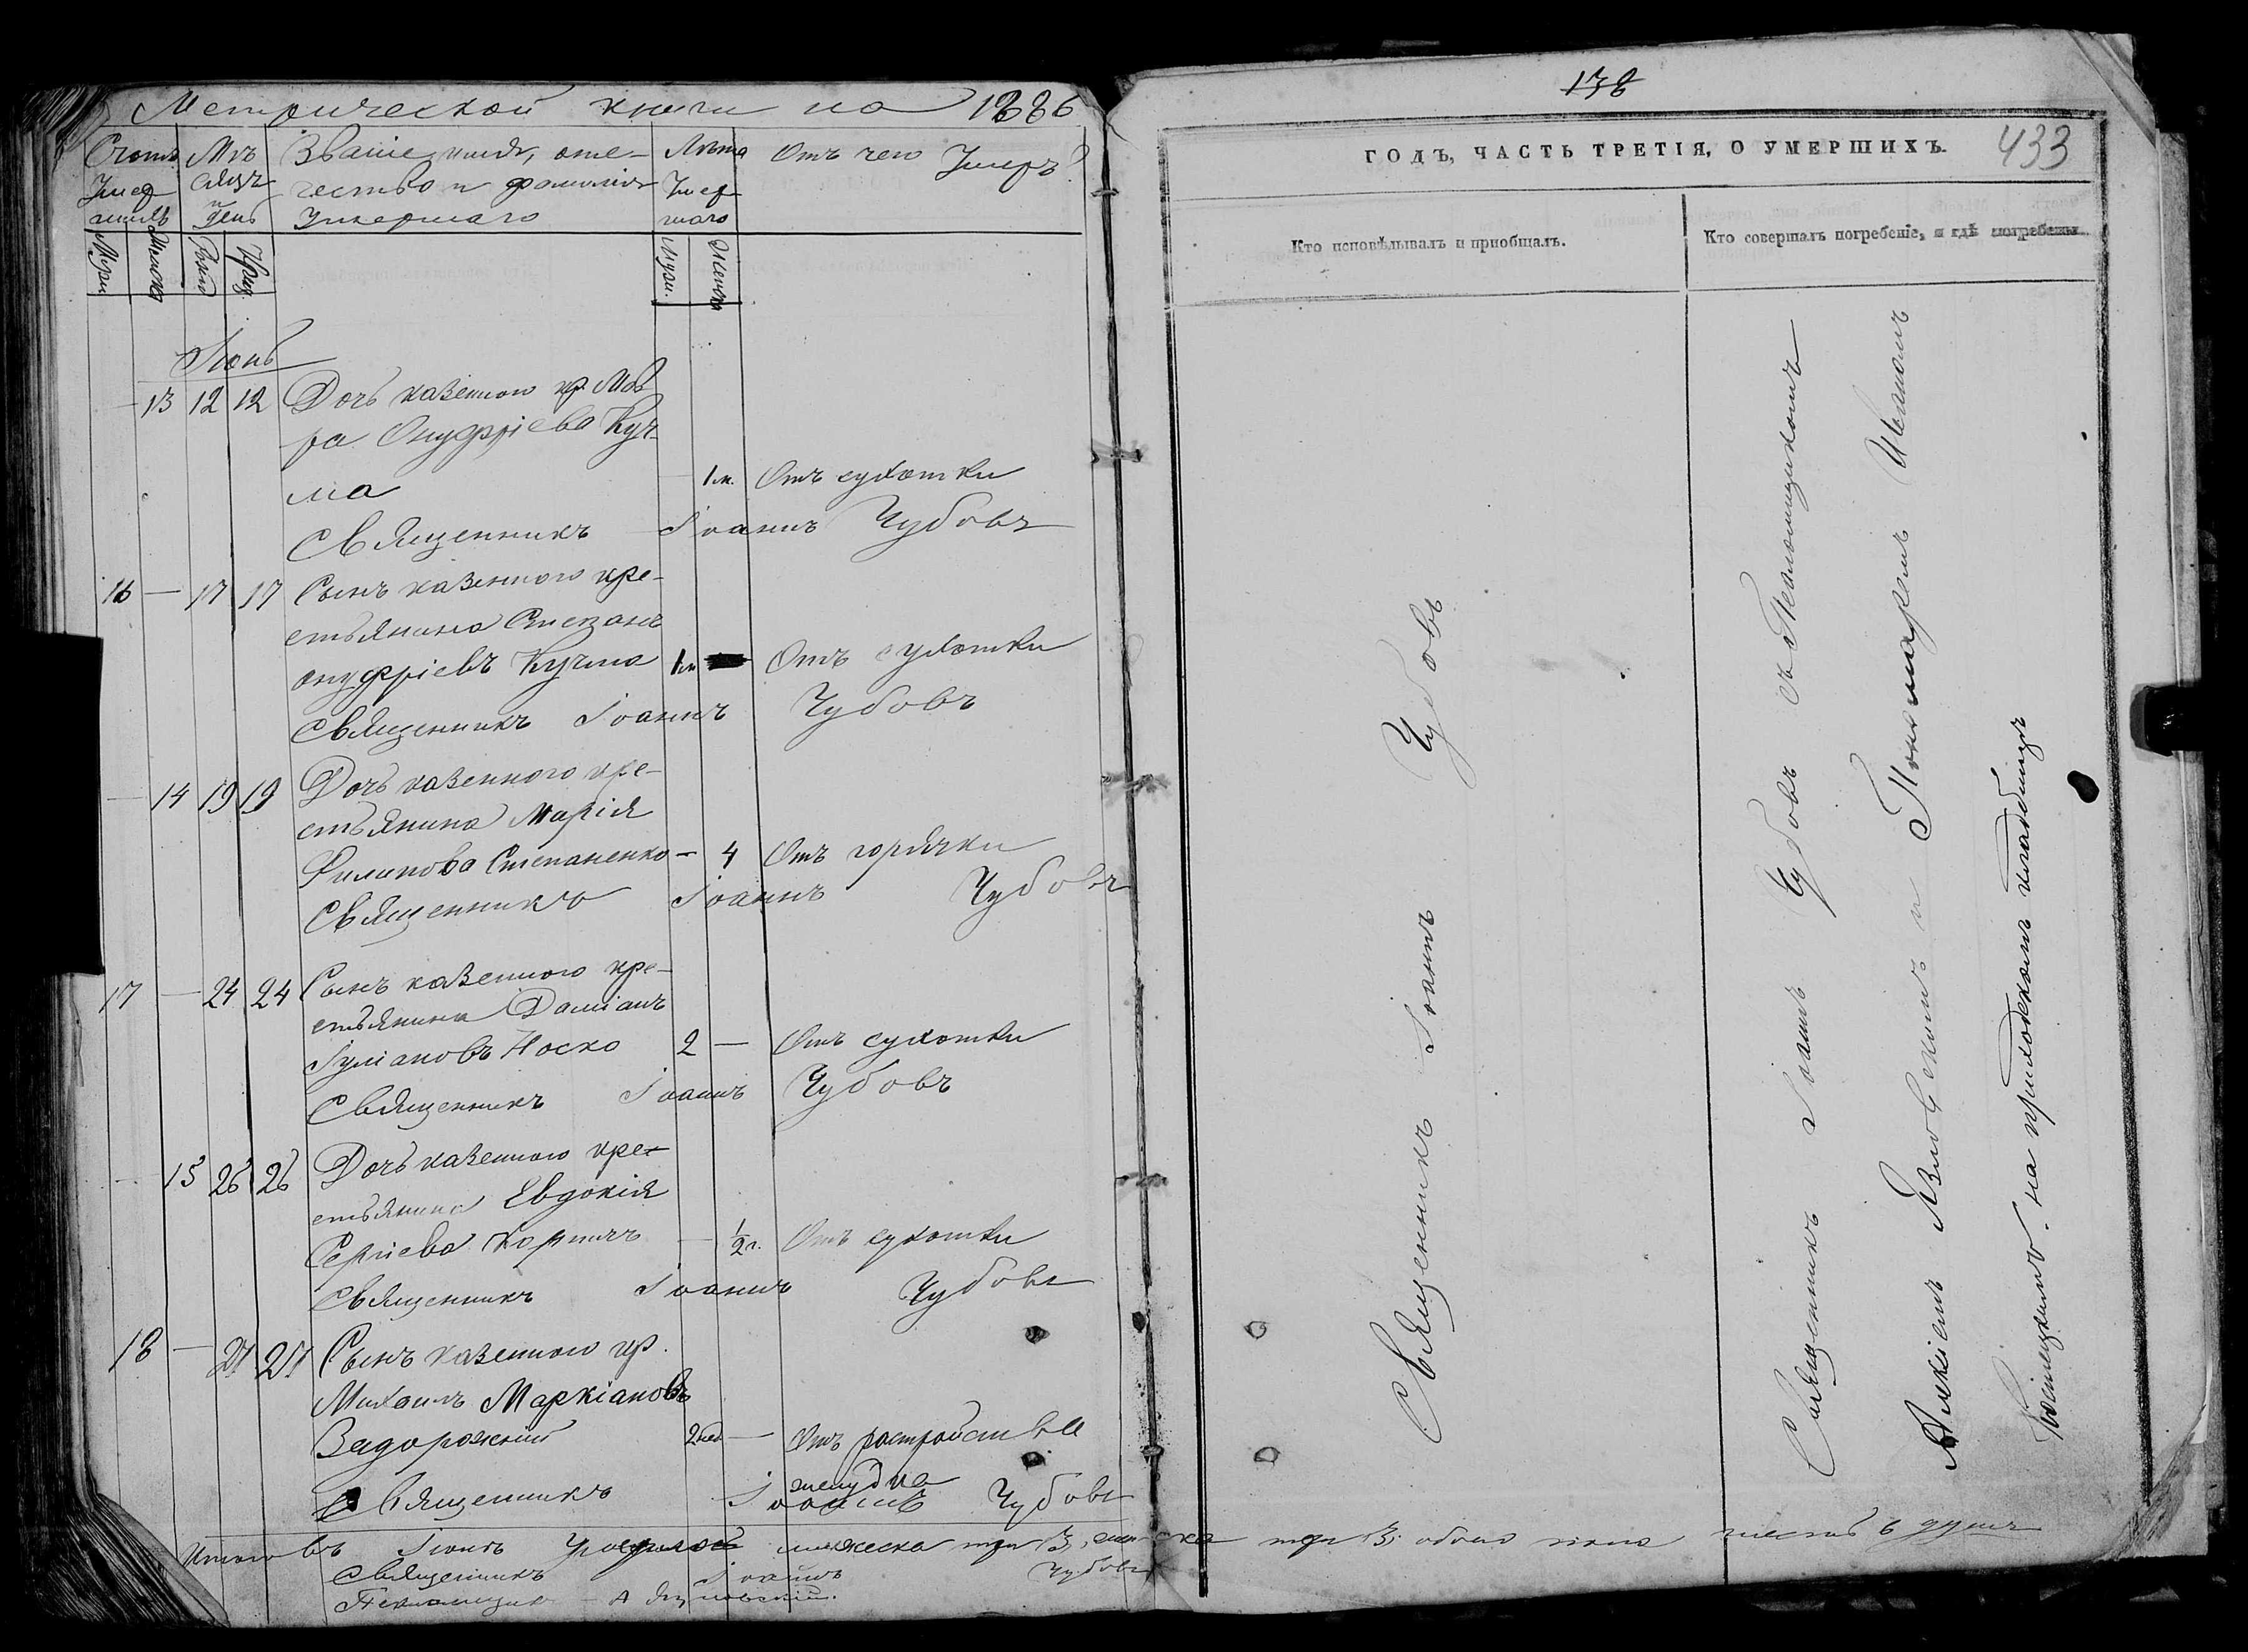 Метрической книги на 1886
Счетъ Мѣ Званіе, имя, оте- Лѣта Отъ чего Умеръ?
Умер сяцъ чество и фамилія Умер
шихъ и день Умершаго шаго
Муж. Женск. Муж. Женск.
Іюнь
— 13 12 12 Дочь казенного кр. Мав
ра Онуфріева Куч-
ма — 1 м. Отъ сухотки
Священникъ Іоаннъ Чубовъ
16 — 17 17 Сынъ казенного кре-
стьянина Степанъ
онуфріевъ Кучма 1 м Отъ сухотки
Священникъ Іоаннъ Чубовъ
— 14 19 19 Дочь казенного кре-
стьянина Марія
Филипова Степаненко — 4 Отъ горячки
Священникъ Іоаннъ Чубовъ
17 — 24 24 Сынъ казенного кре-
стьянина Даміанъ
Іуліановъ Носко 2 — Отъ сухотки
Священникъ Іоаннъ Чубовъ
— 15 26 26 Дочь казенного кре-
стьянина Евдокія
Сергіева — 1/2 г. Отъ сухотки
Священникъ Іоаннъ Чубовъ
18 — 27 27 Сынъ казенного кр.
Михаилъ Маркіановъ
Задорожній 2 нед — Отъ растройства
желудка
Священникъ Іоаннъ Чубовъ
Итого въ Іюнѣ мужеска три 3, женска три 3; обоего пола шесть 6 душъ
Священникъ Іоаннъ Чубовъ
138
433
ГОДЪ, ЧАСТЬ ТРЕТІЯ, О УМЕРШИХЪ.
Кто исповѣдывалъ и пріобщалъ.
Кто совершалъ погребеніе, и гдѣ погребены.
Священникъ Іоаннъ Чубовъ
Священникъ Іоаннъ Чубовъ съ Псаломщикомъ
Алексіемъ и Пономаремъ
на приходскомъ кладбищѣ